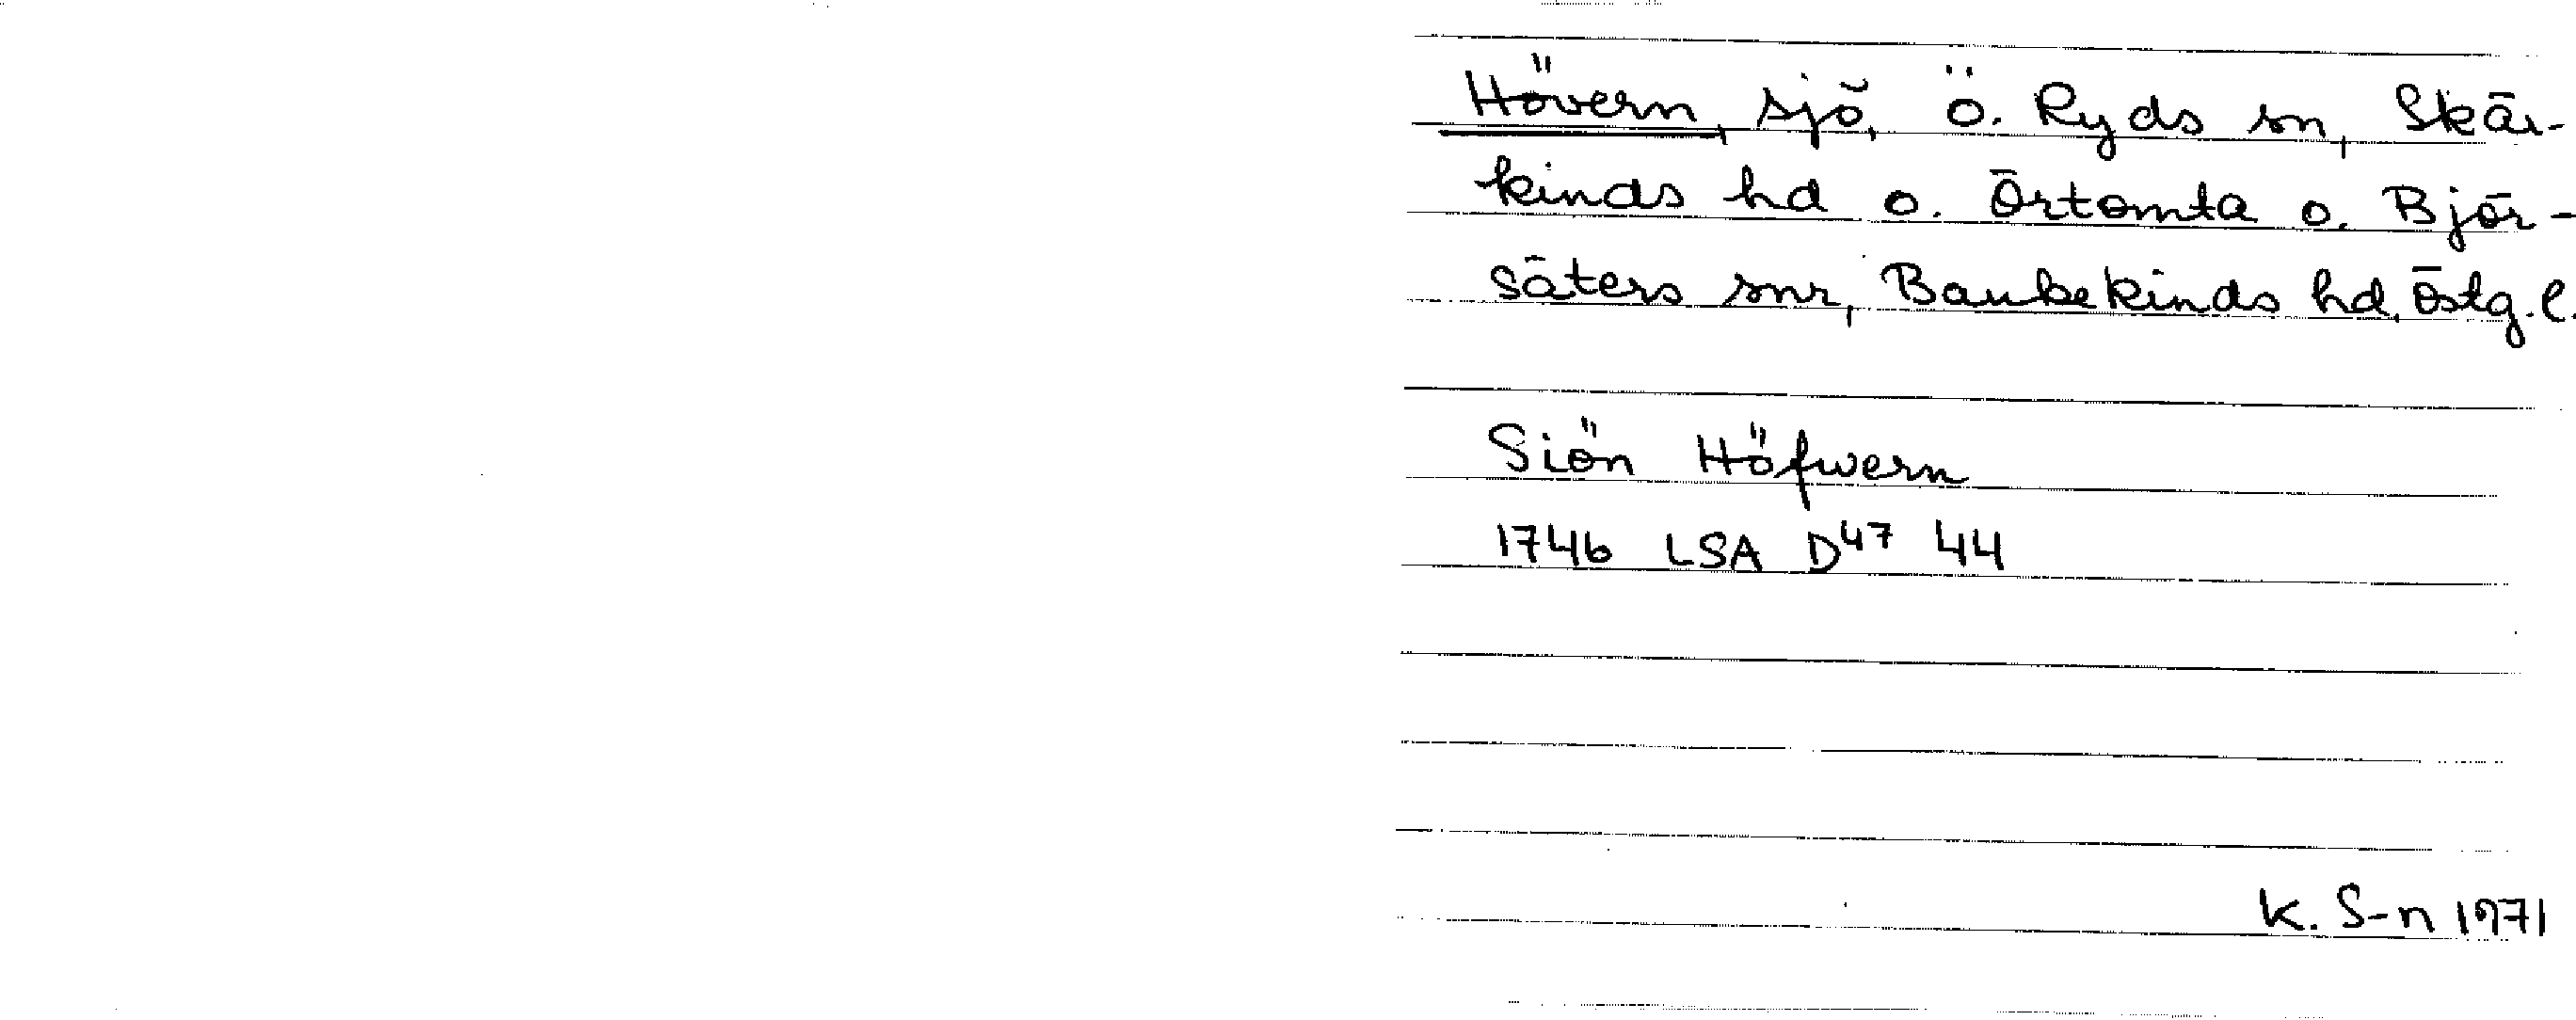 Hövern, sjö, Ö. Ryds sn, Skär-
kinds hd o. Örtomta o. Björ-
säters snr, Bankekinds hd, Östg. l.
Siön Höfwern
1746 LSA D47 44
K. S-n 1971